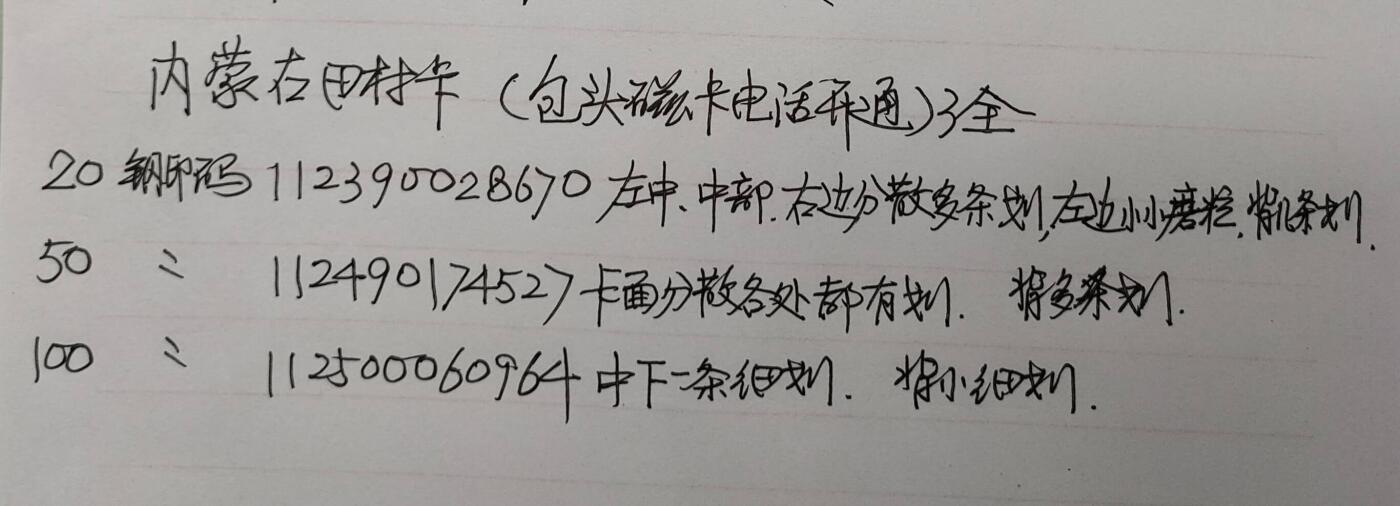 内蒙古田村卡（包头磁卡电话开通）3全
20 钢印码 112390028670 左中、中部、右边分散多条划,左边小小磨粒.背几条划.
50 〃 112490174527 卡面分散各处都有划. 背多条划.
100 〃 112500060964 中下一条细划. 背小细划.